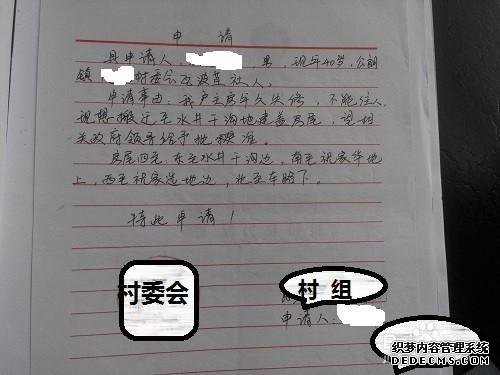 申 请
具申请人、 男,现年40岁,公朗
镇 村委会瓦波莲社人。
申请事由:我户主房年久失修,不能住人,
现想搬迁至水井干沟地建盖房屋,望相
关政府领导给予批 准。
房屋四至:东至水井干沟边,南至祝家华地
上,西至祝家选地边,北至车路下。
特此申请!
村委会
村 组
申请人:
织梦内容管理系统
DEDECMS.COM